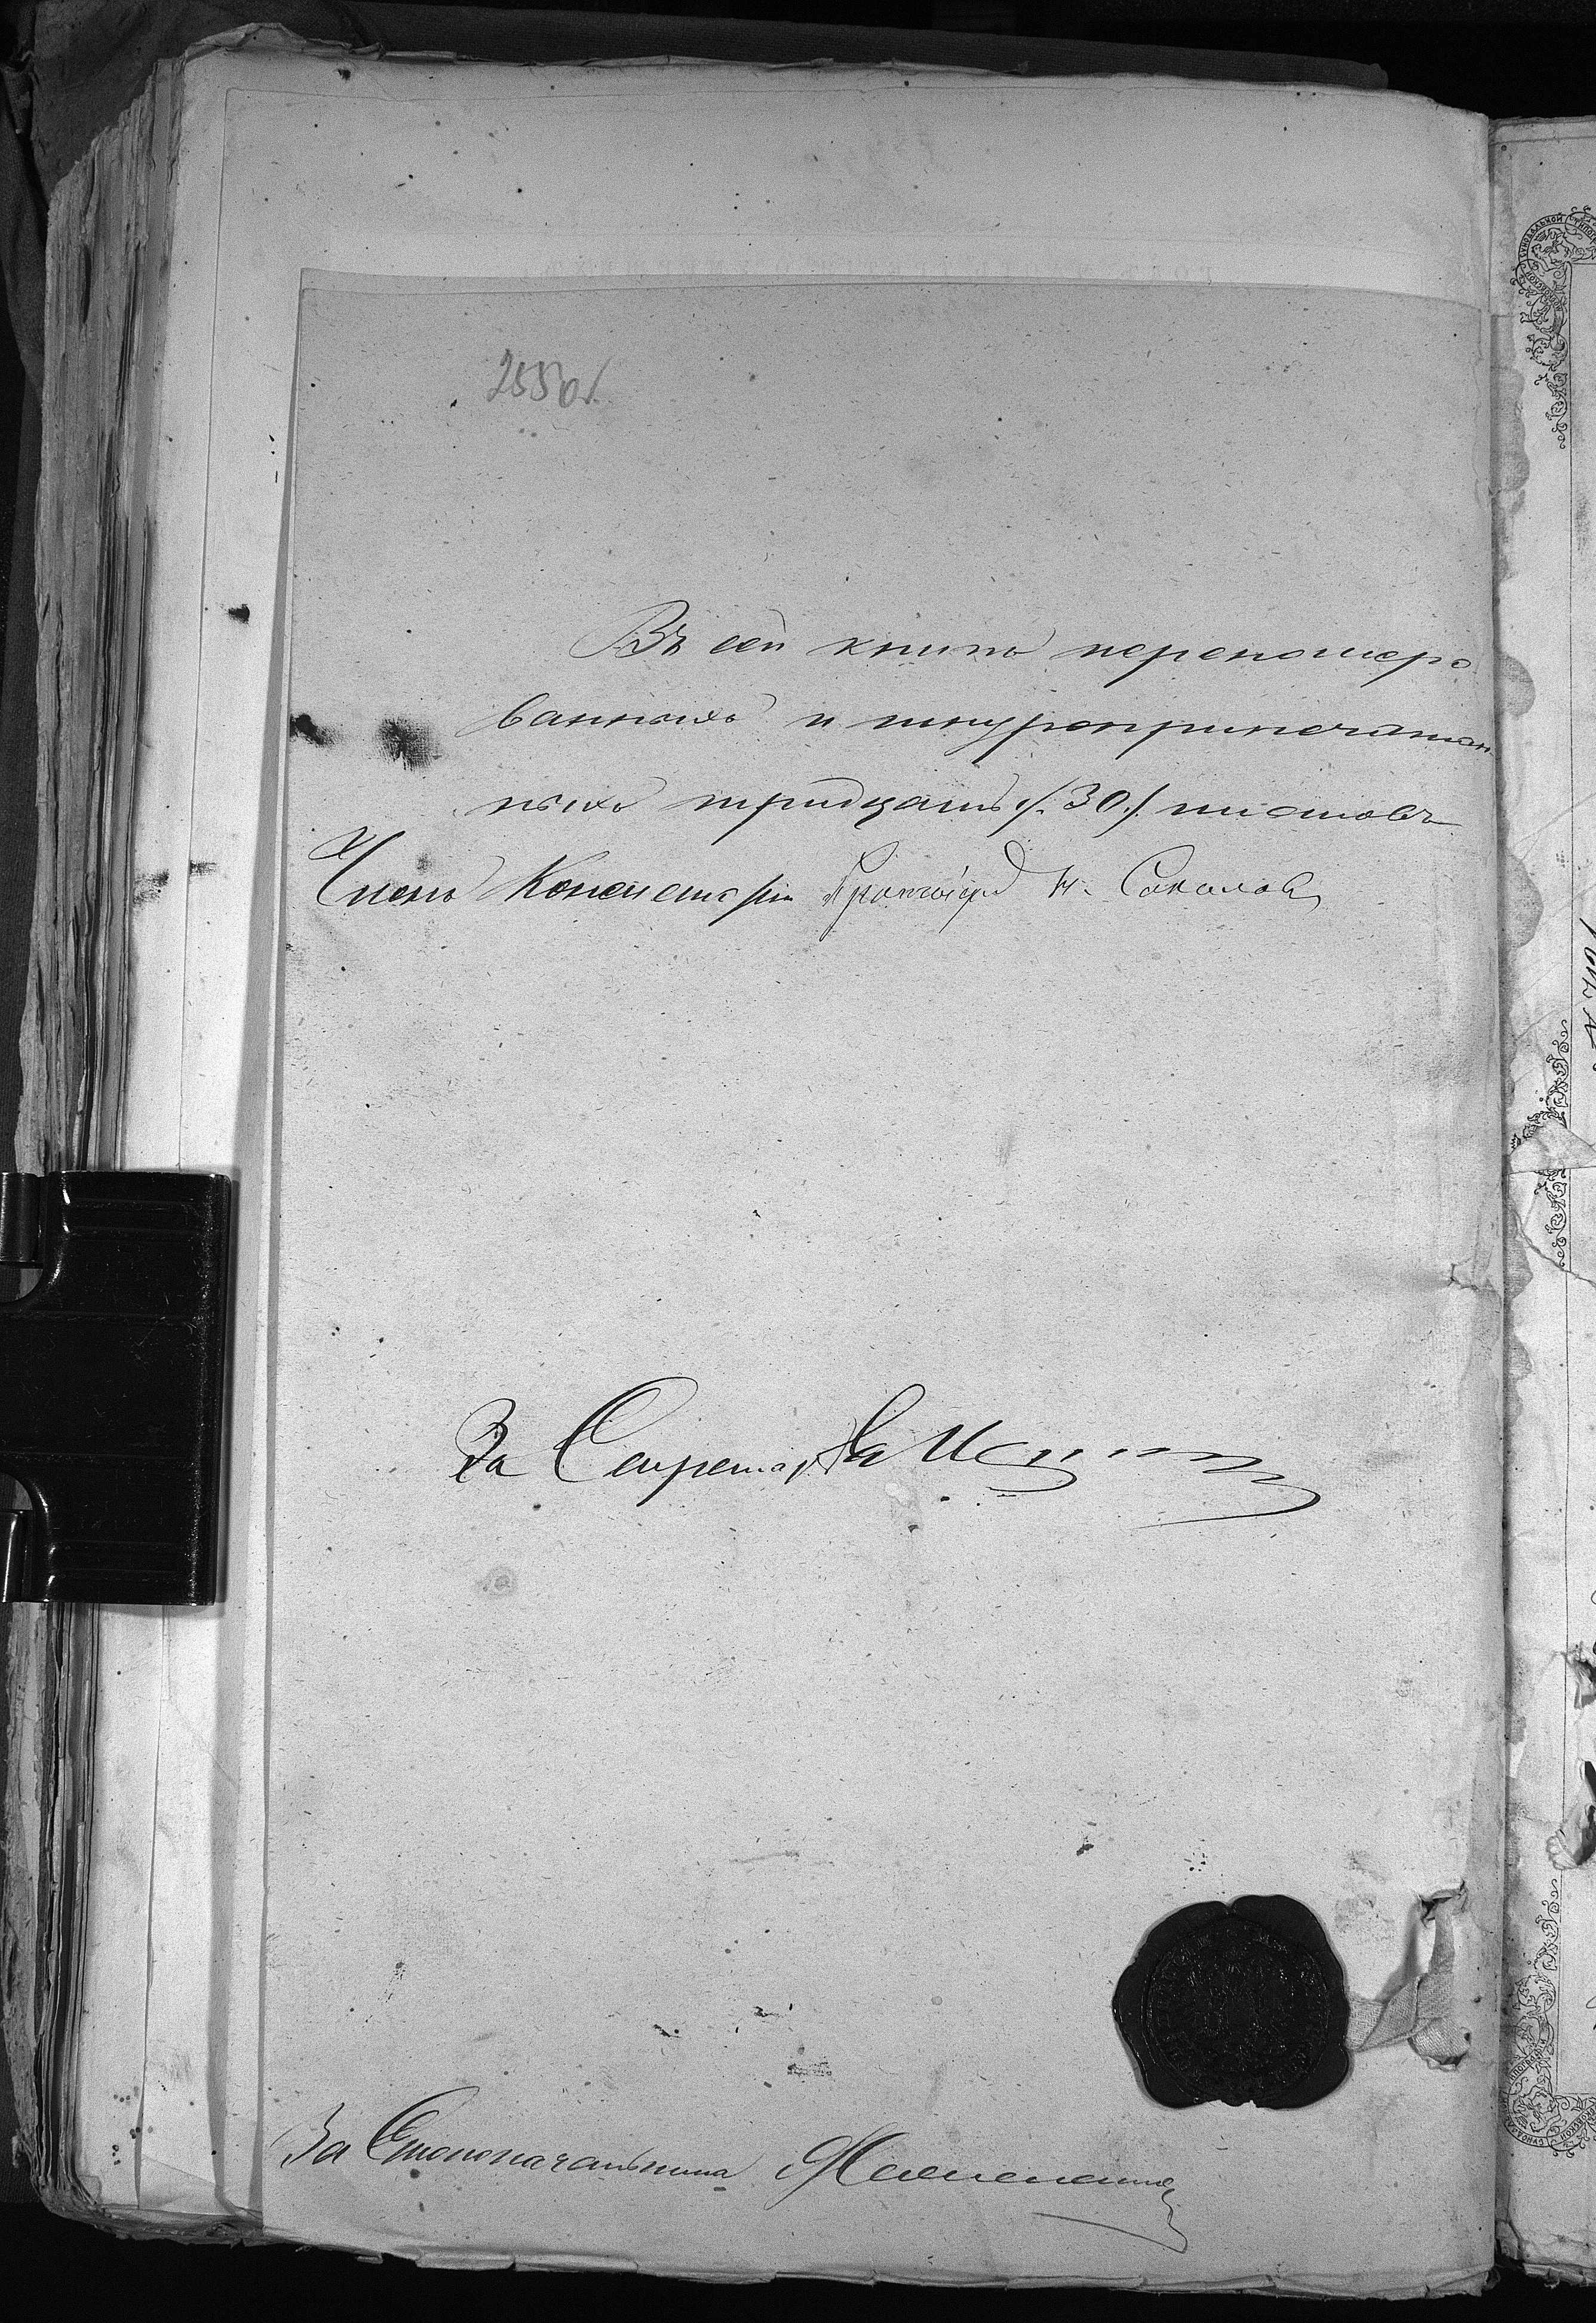 255об.
Въ сей книгѣ перенумеро
ванныхъ и шнуроприпечатан
ныхъ тридцать /.30./ листовъ
Членъ Консисторіи Протоіерей Н. Соколовъ
За Секретаря
За Столоначальника